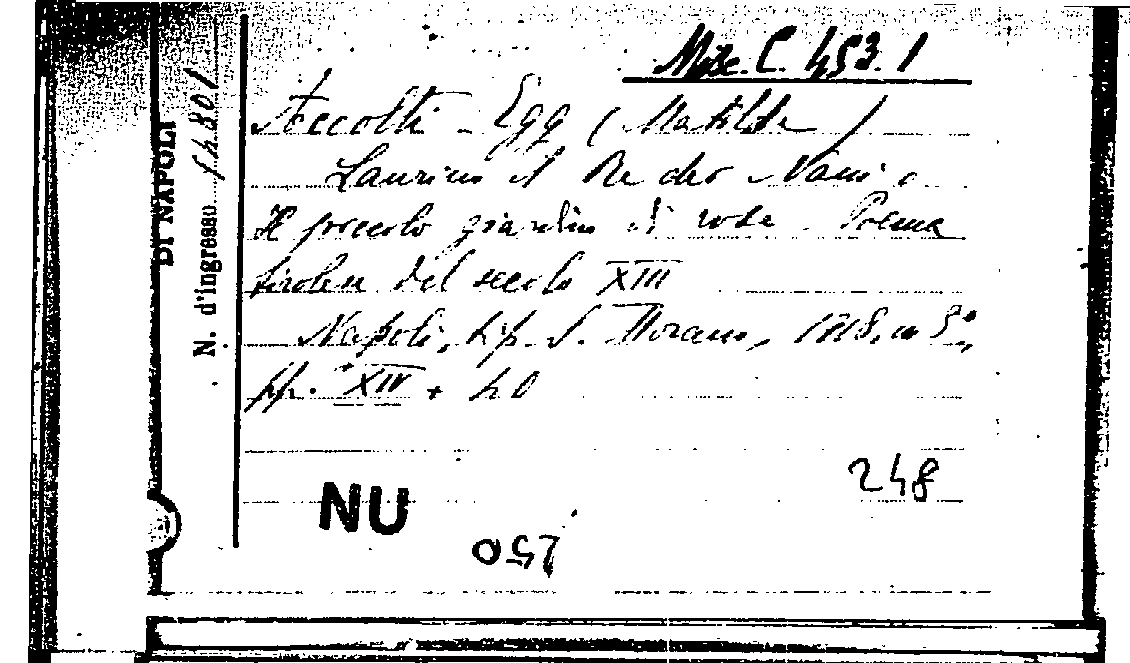 Misc. C. 453. 1
DI NAPOLI
N. d'ingresso 14801
Accolti - Egg (Matilde)
Laurino il Re dei Nani o
Il piccolo giardino di rose. Poema
tirolese del secolo XIII
Napoli, tip. S. Morano, in 8°,
pp. XIV + 40
248
NU
250